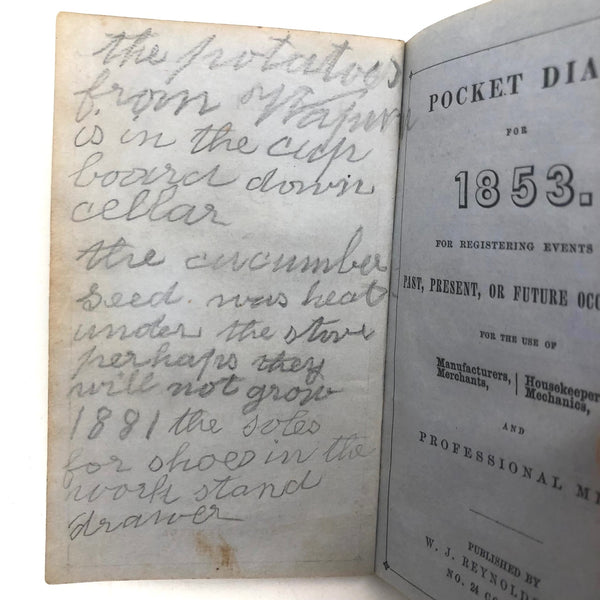 the potatoes
from
is in the cup
board down
cellar
the cucumber
seed. was heat
under the stove
perhaps they
will not grow
1881 the soles
for shoes in the
work stand
drawer
POCKET DIA
FOR
1853.
FOR REGISTERING EVENTS
PAST, PRESENT, OR FUTURE OCC
FOR THE USE OF
Manufacturers,
Merchants,
Housekeeper
Mechanics,
AND
PROFESSIONAL ME
PUBLISHED BY
W. J. REYNOLD
NO. 24 CO